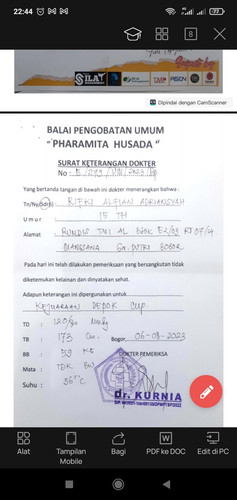 22:44
8
SILAT
Dipindai dengan CamScanner
BALAI PENGOBATAN UMUM
"PHARAMITA HUSADA"
SURAT KETERANGAN DOKTER
No :
Yang bertanda tangan di bawah ini dokter menerangkan bahwa :
Tn/Ny/Sdr/i : RIFKI ALFIAN ADRIANSYAH
Umur : 15 TH
Alamat : RUNDIS TNI AL BLOK E2/09 RT 07/14
CIANGSANA GN. PUTRI BOGOR
Pada hari ini telah dilakukan pemeriksaan yang bersangkutan tidak
diketemukan kelainan dan dinyatakan sehat.
Adapun keterangan ini dipergunakan untuk
KEJUARAAN DEPOK CUP.
TD : 120/80 MmHg
TB : 173 Cm. Bogor, 06-08-2023
BB : 59 KG DOKTER PEMERIKSA
Mata : TDK BW
Suhu : 36°C
dr. KURNIA
Alat
Tampilan Mobile
Bagi
PDF ke DOC
Edit di PC